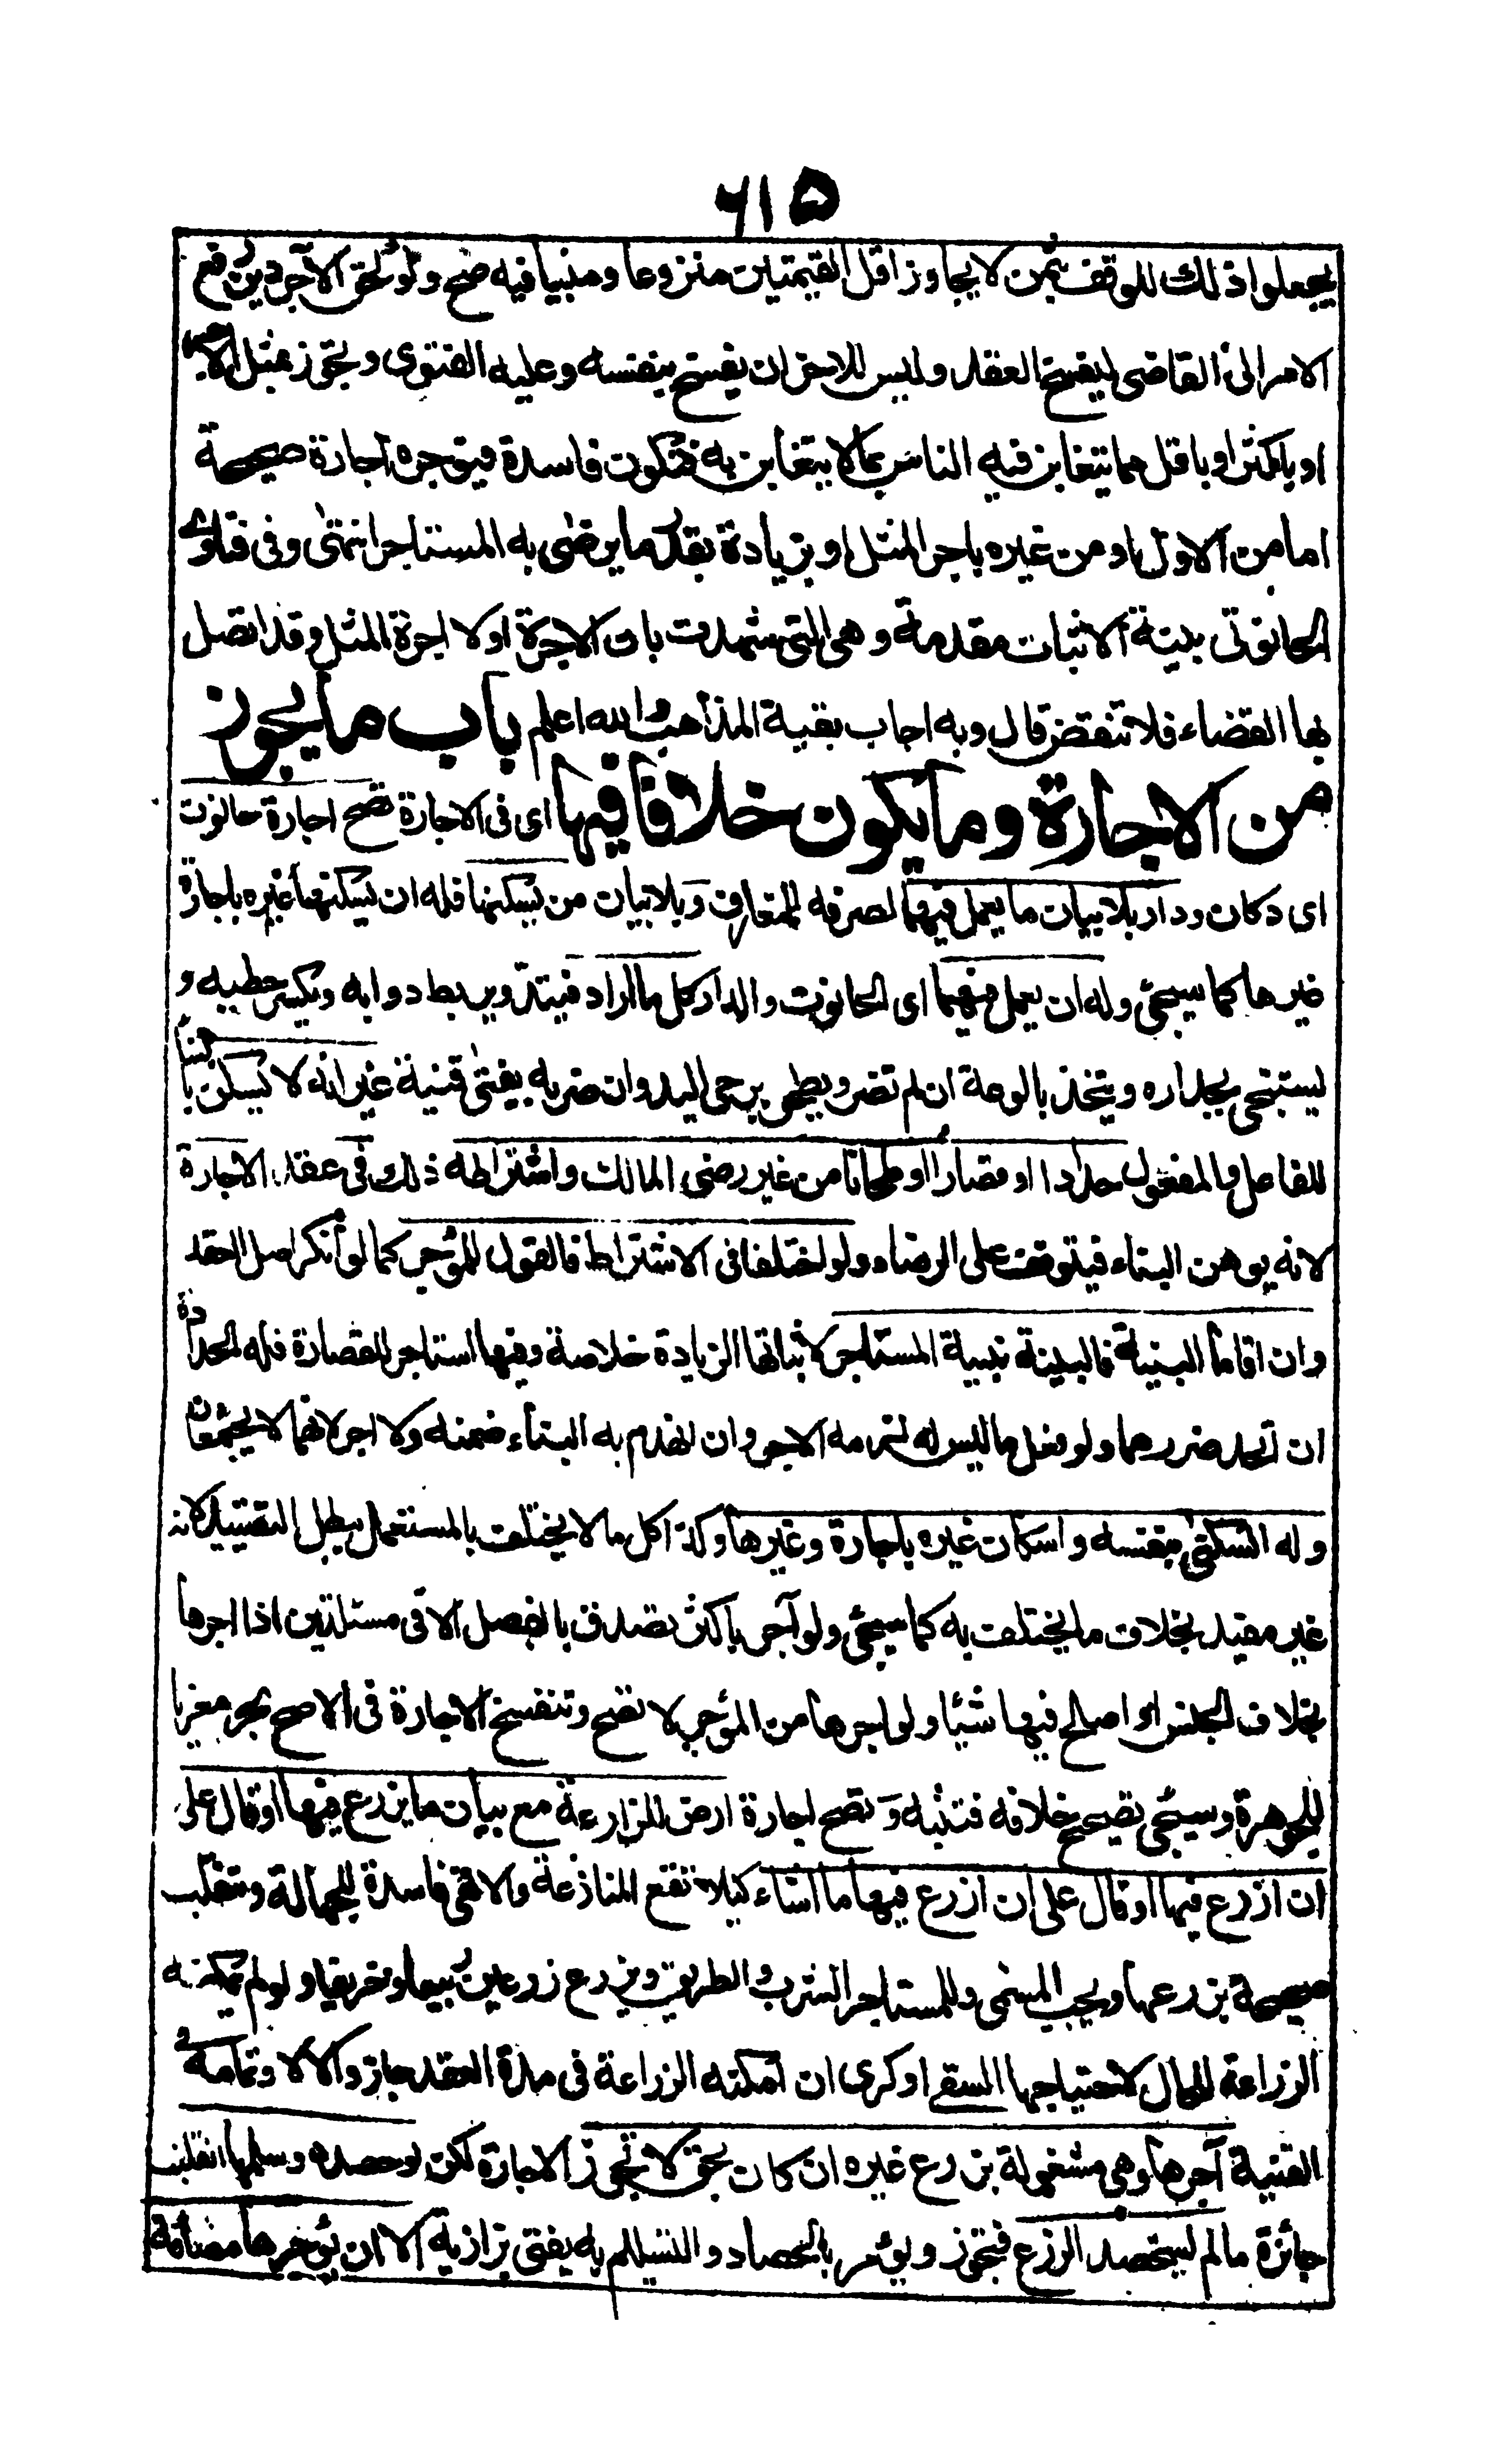 ٦١٥
يجعلوا ذلك للوقف بثمن لا يجاوز اقل القيمتين منزوعا ومبنيا فيه صح ولو لحق الآجر دين رفع
الامر الى القاضى ليفسخ العقد وليس للآجر ان يفسخ بنفسه وعليه الفتوى وبجوز بمثل الاجر
او باكثر او باقل مما يتغابن فيه الناس بما لا يتغابن به فتكون فاسدة فيؤجره اجارة صحيحة
اما من الاول او من غيره باجر المثل او بزيادة بقدر ما يرضى به المستاجر انتهى وفى فتاوى
الحانوتى بينة الاثبات مقدمة وهى التى شهدت بان الاجرة اولا اجرة المثل وقد اتصل
بها القضاء فلا تنقض قال وبه اجاب بقية المذاهب والله اعلم باب ما يجوز
من الاجارة وما يكون خلافا فيها اى فى الاجارة تصح اجارة حانوت
اى دكان ودار بلا بيان ما يعمل فيهما لصرفه للمتعارف وبلا بيان من يسكنها فله ان يسكنها غيره باجارة
وغيرها كما سيجئ وله ان يعمل فيهما اى الحانوت والدار كل ما اراد فيتد ويربط دوابه ويكسر حطبه و
ليستنجى بجداره ويتخذ بالوعة ان لم تضر ويطحن برحى اليد وان ضر به يفتى قنية غير انه لا يسكن بالبناء
للفاعل والمفعول حدادا او قصارا او طحانا من غير رضى المالك واشتراطه ذلك فى عقد الاجارة
لانه يوهن البناء فيتوقف على الرضاء ولو اختلفا فى الاشتراط فالقول للمؤجر كما لو أنكر اصل العقد
وان اقاما البينة فالبينة بينة المستاجر لاثباتها الزيادة خلاصة وفيها استاجر للقصارة فله الحدادة
ان اتحد ضررهما ولو فعل ما ليس له لزمه الاجر وان انهدم به البناء ضمنه ولا اجر لانهما لا يجتمعان
وله السكنى بنفسه واسكان غيره باجارة وغيرها وكذا كل ما لا يختلف بالمستعمل يبطل التقييد لانه
غير مفيد بخلاف ما يختلف به كما سيجئ ولو آجر باكثر تصدق بالفضل الا فى مسئلتين اذا اجرها
بخلاف الجنس او اصلح فيها شيئا ولو اجرها من المؤجر لا تصح وتنفسخ الاجارة فى الاصح بحر معزيا
للجوهرة وسيجئ تصحيح خلافه فتنبه وتصح اجارة ارض للزراعة مع بيان ما يزرع فيها او قال على
ان ازرع فيها او قال على ان ازرع فيها ما اشاء كيلا تقع المنازعة والا فهى فاسدة للجهالة وتنقلب
صحيحة بزرعها ويجب المسمى وللمستاجر الشرب والطريق ويزرع زرعين ربيعا وخريفا ولو لم يمكنه
الزراعة للحال لاحتياجها لسقى او كرى ان امكنه الزراعة فى مدة العقد جاز والا لا وتمامه فى
القنية آجرها وهى مشغولة بزرع غيره ان كان بحق لا تجوز الاجارة لكن لو حصده وسلمها انقلبت
جائزة ما لم يستحصد الزرع فتجوز ويؤمر بالحصاد والتسليم به يفتى بزازية الا ان يؤجرها مضافة